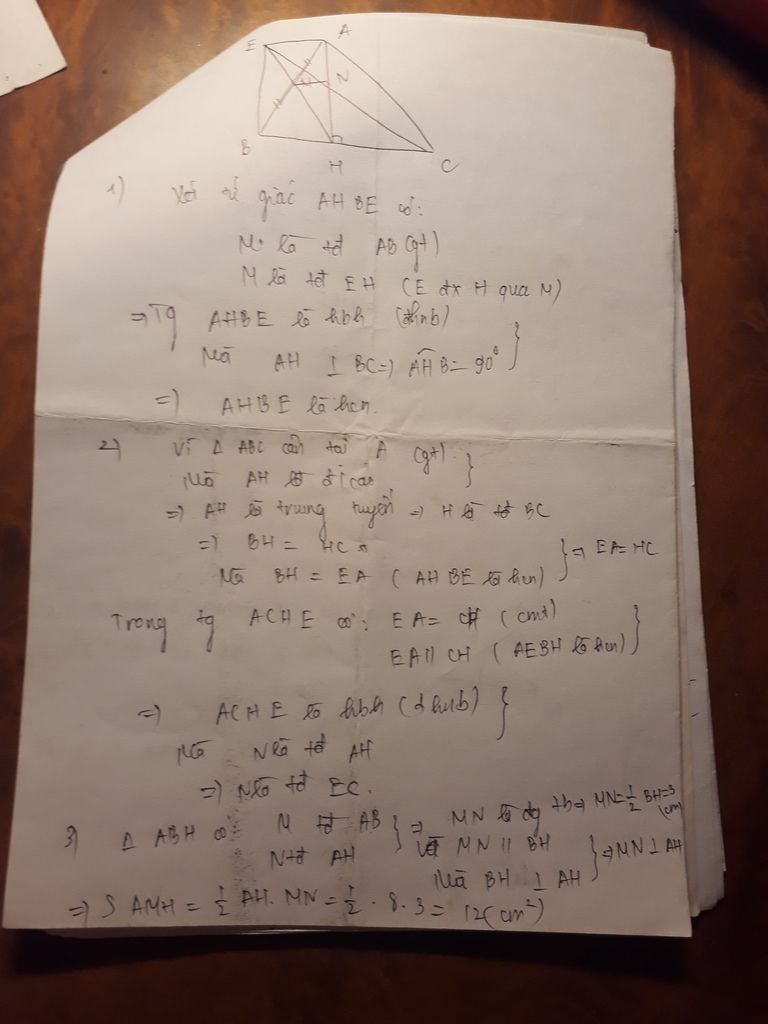 E A
M N
B H C
1) Xét tứ giác AHBE có:
M là tđ AB (gt)
M là tđ EH (E đx H qua M)
=> Tg AHBE là hbh (dhnb)
Mà AH ⊥ BC => AHB = 90° }
=> AHBE là hcn.
2) Vì Δ ABC cân tại A (gt) }
Mà AH là đ/cao
=> AH là trung tuyến => H là tđ BC
=> BH = HC } => EA = HC
Mà BH = EA (AHBE là hcn)
Trong tg ACHE có: EA = CH (cmt) }
EA // CH (AEBH là hcn)
=> ACHE là hbh (dhnb) }
Mà N là tđ AH
=> N là tđ EC.
3) Δ ABH có: M tđ AB } => MN là đg tb => MN = 1/2 BH = 3 (cm)
N tđ AH và MN // BH } => MN ⊥ AH
Mà BH ⊥ AH
=> S AMH = 1/2 AH. MN = 1/2 . 8 . 3 = 12 (cm²)